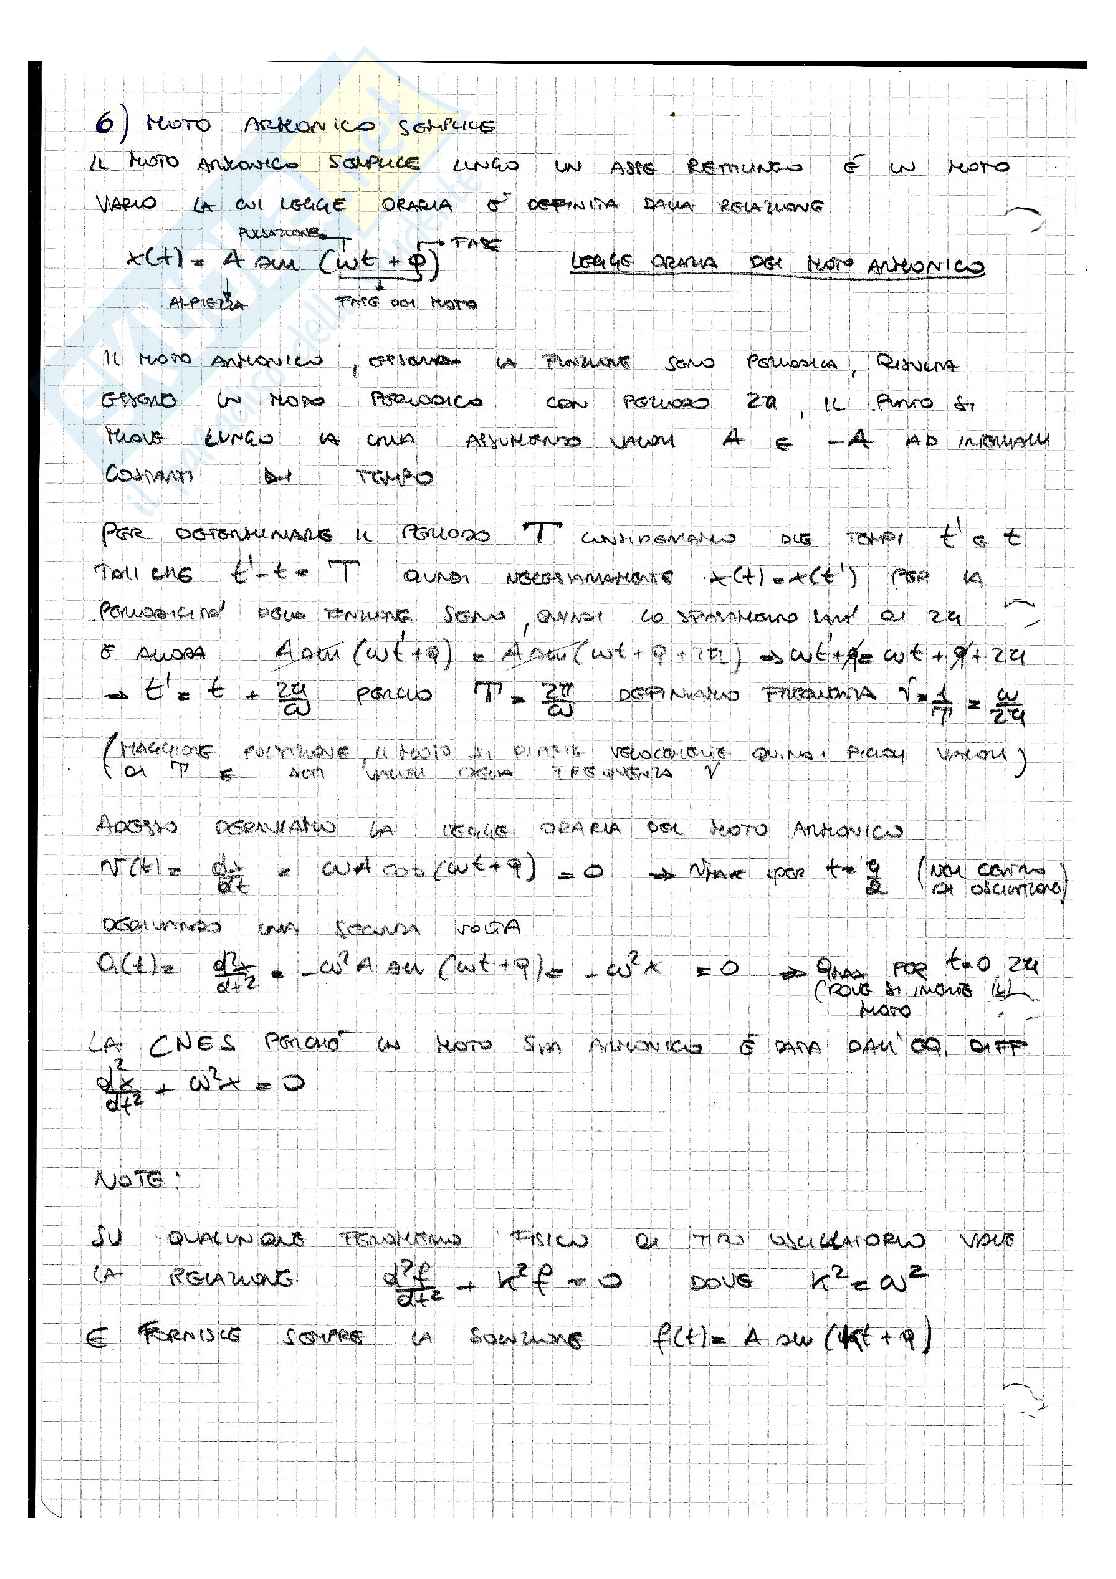 6) MOTO ARMONICO SEMPLICE
IL MOTO ARMONICO SEMPLICE LUNGO UN ASSE RETTILINEO È UN MOTO
VARIO LA CUI LEGGE ORARIA È DEFINITA DALLA RELAZIONE
PULSAZIONE FASE
x(t) = A sen (ωt + φ) LEGGE ORARIA DEL MOTO ARMONICO
AMPIEZZA FASE DEL MOTO
IL MOTO ARMONICO, ESSENDO LA FUNZIONE SENO PERIODICA, RISULTA
ESSERE UN MOTO PERIODICO CON PERIODO 2π, IL PUNTO SI
MUOVE LUNGO LA ASSUMENDO VALORI A E -A AD INTERVALLI
COSTANTI DI TEMPO
PER DETERMINARE IL PERIODO T CONSIDERIAMO DUE TEMPI t' E t
TALI CHE t'-t = T QUINDI NECESSARIAMENTE x(t) = x(t') PER LA
PERIODICITÀ DELLA FUNZIONE SENO, QUINDI LO SFASAMENTO SARÀ DI 2π
E ALLORA A sen (ωt'+φ) = A sen (ωt + φ + 2π) → ωt'+φ = ωt + φ + 2π
→ t' = t + 2π/ω PERCIÒ T = 2π/ω DEFINIAMO FREQUENZA ν = 1/T = ω/2π
(MAGGIORE PULSAZIONE, IL MOTO SI VELOCEMENTE QUINDI PICCOLI VALORI)
DI T E ALTI VALORI DELLA FREQUENZA ν
ADESSO DERIVIAMO LA LEGGE ORARIA DEL MOTO ARMONICO
v(t) = dx/dt = ωA cos (ωt+φ) = 0 → vmax per t = (NEL CENTRO
DI OSCILLAZIONE)
DERIVANDO UNA SECONDA VOLTA
a(t) = d²x/dt² = -ω²A sen (ωt+φ) = -ω²x = 0 → amax PER t=0, 2π
(DOVE SI INVERTE IL
MOTO
LA CNES PERCHÉ UN MOTO SIA ARMONICO È DATA DALL'EQ. DIFF
d²x/dt² + ω²x = 0
NOTE:
SU QUALUNQUE FENOMENO FISICO DI TIPO OSCILLATORIO VALE
LA RELAZIONE d²f/dt² + k²f = 0 DOVE k² = ω²
E FORNISCE SEMPRE LA SOLUZIONE f(t) = A sen (kt + φ)